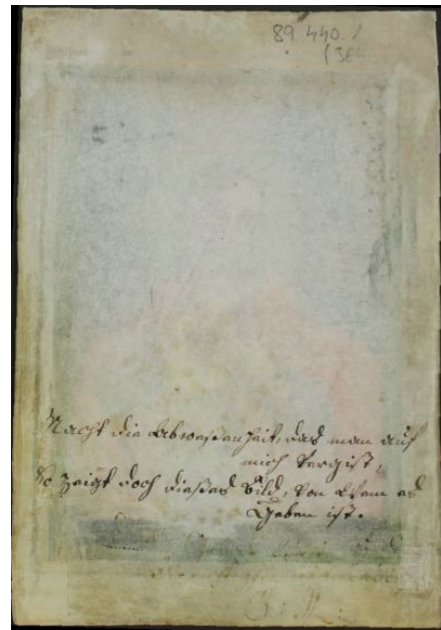 89.440./
(3E4
Macht die Abweßenheit, das man auf
mich Vergist,
So Zeigt doch dießes Bild, Von Wem es
Geben ist.